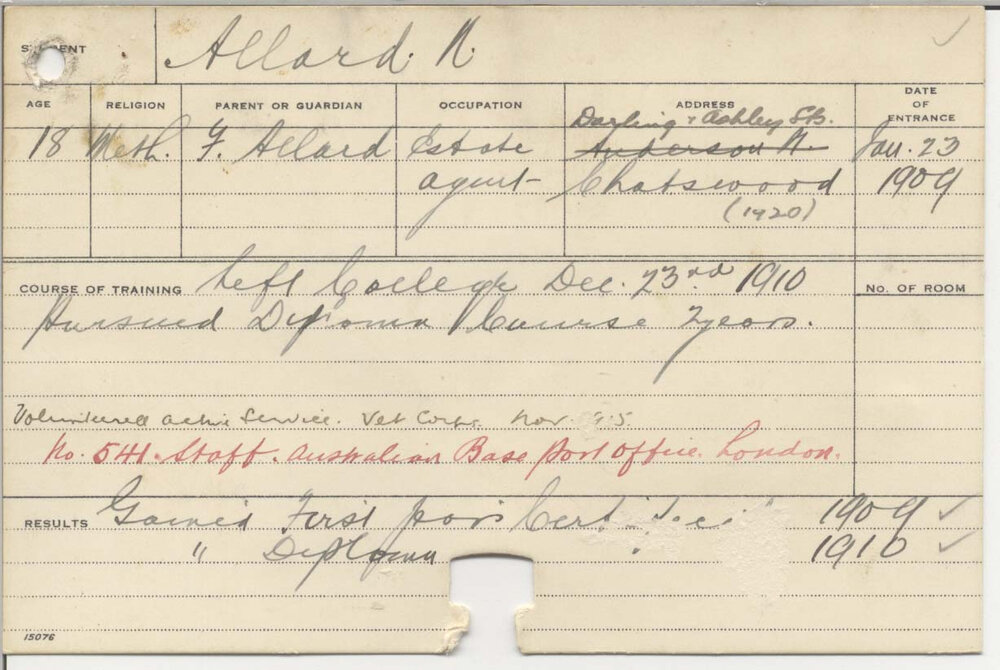 STUDENT Allard. N.
AGE RELIGION PARENT OR GUARDIAN OCCUPATION ADDRESS DATE OF ENTRANCE
Darling & Ashley Sts.
18 Meth. F. Allard Estate Anderson N. Jan. 23
agent Chatswood 1909
(1920)
COURSE OF TRAINING Left College Dec. 23rd 1910
No. OF ROOM
Pursued Diploma Course 2 years.
Volunteered active Service. Vet Corps. Nov.
No. 541. Staff. Australian Base Post Office. London.
RESULTS Gained First Cert 1909 ✓
" Diploma 1910 ✓
15076